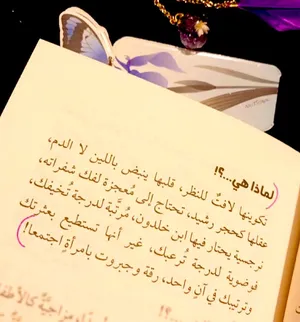 لماذا هي...؟!
تكوينها لافتٌ للنظر، قلبها ينبض باللين لا الدم،
عقلها كحجر رشيد، تحتاج إلى مُعجزة لفك شفراته،
نرجسية يحتار فيها ابن خلدون، مُرتَّبة لدرجة تُخيفك،
فوضوية لدرجة تُرعبك، غير أنها تستطيع بعثرتك
وترتيبك في آنٍ واحد، رقة وجبروت بامرأةٍ اجتمعا!